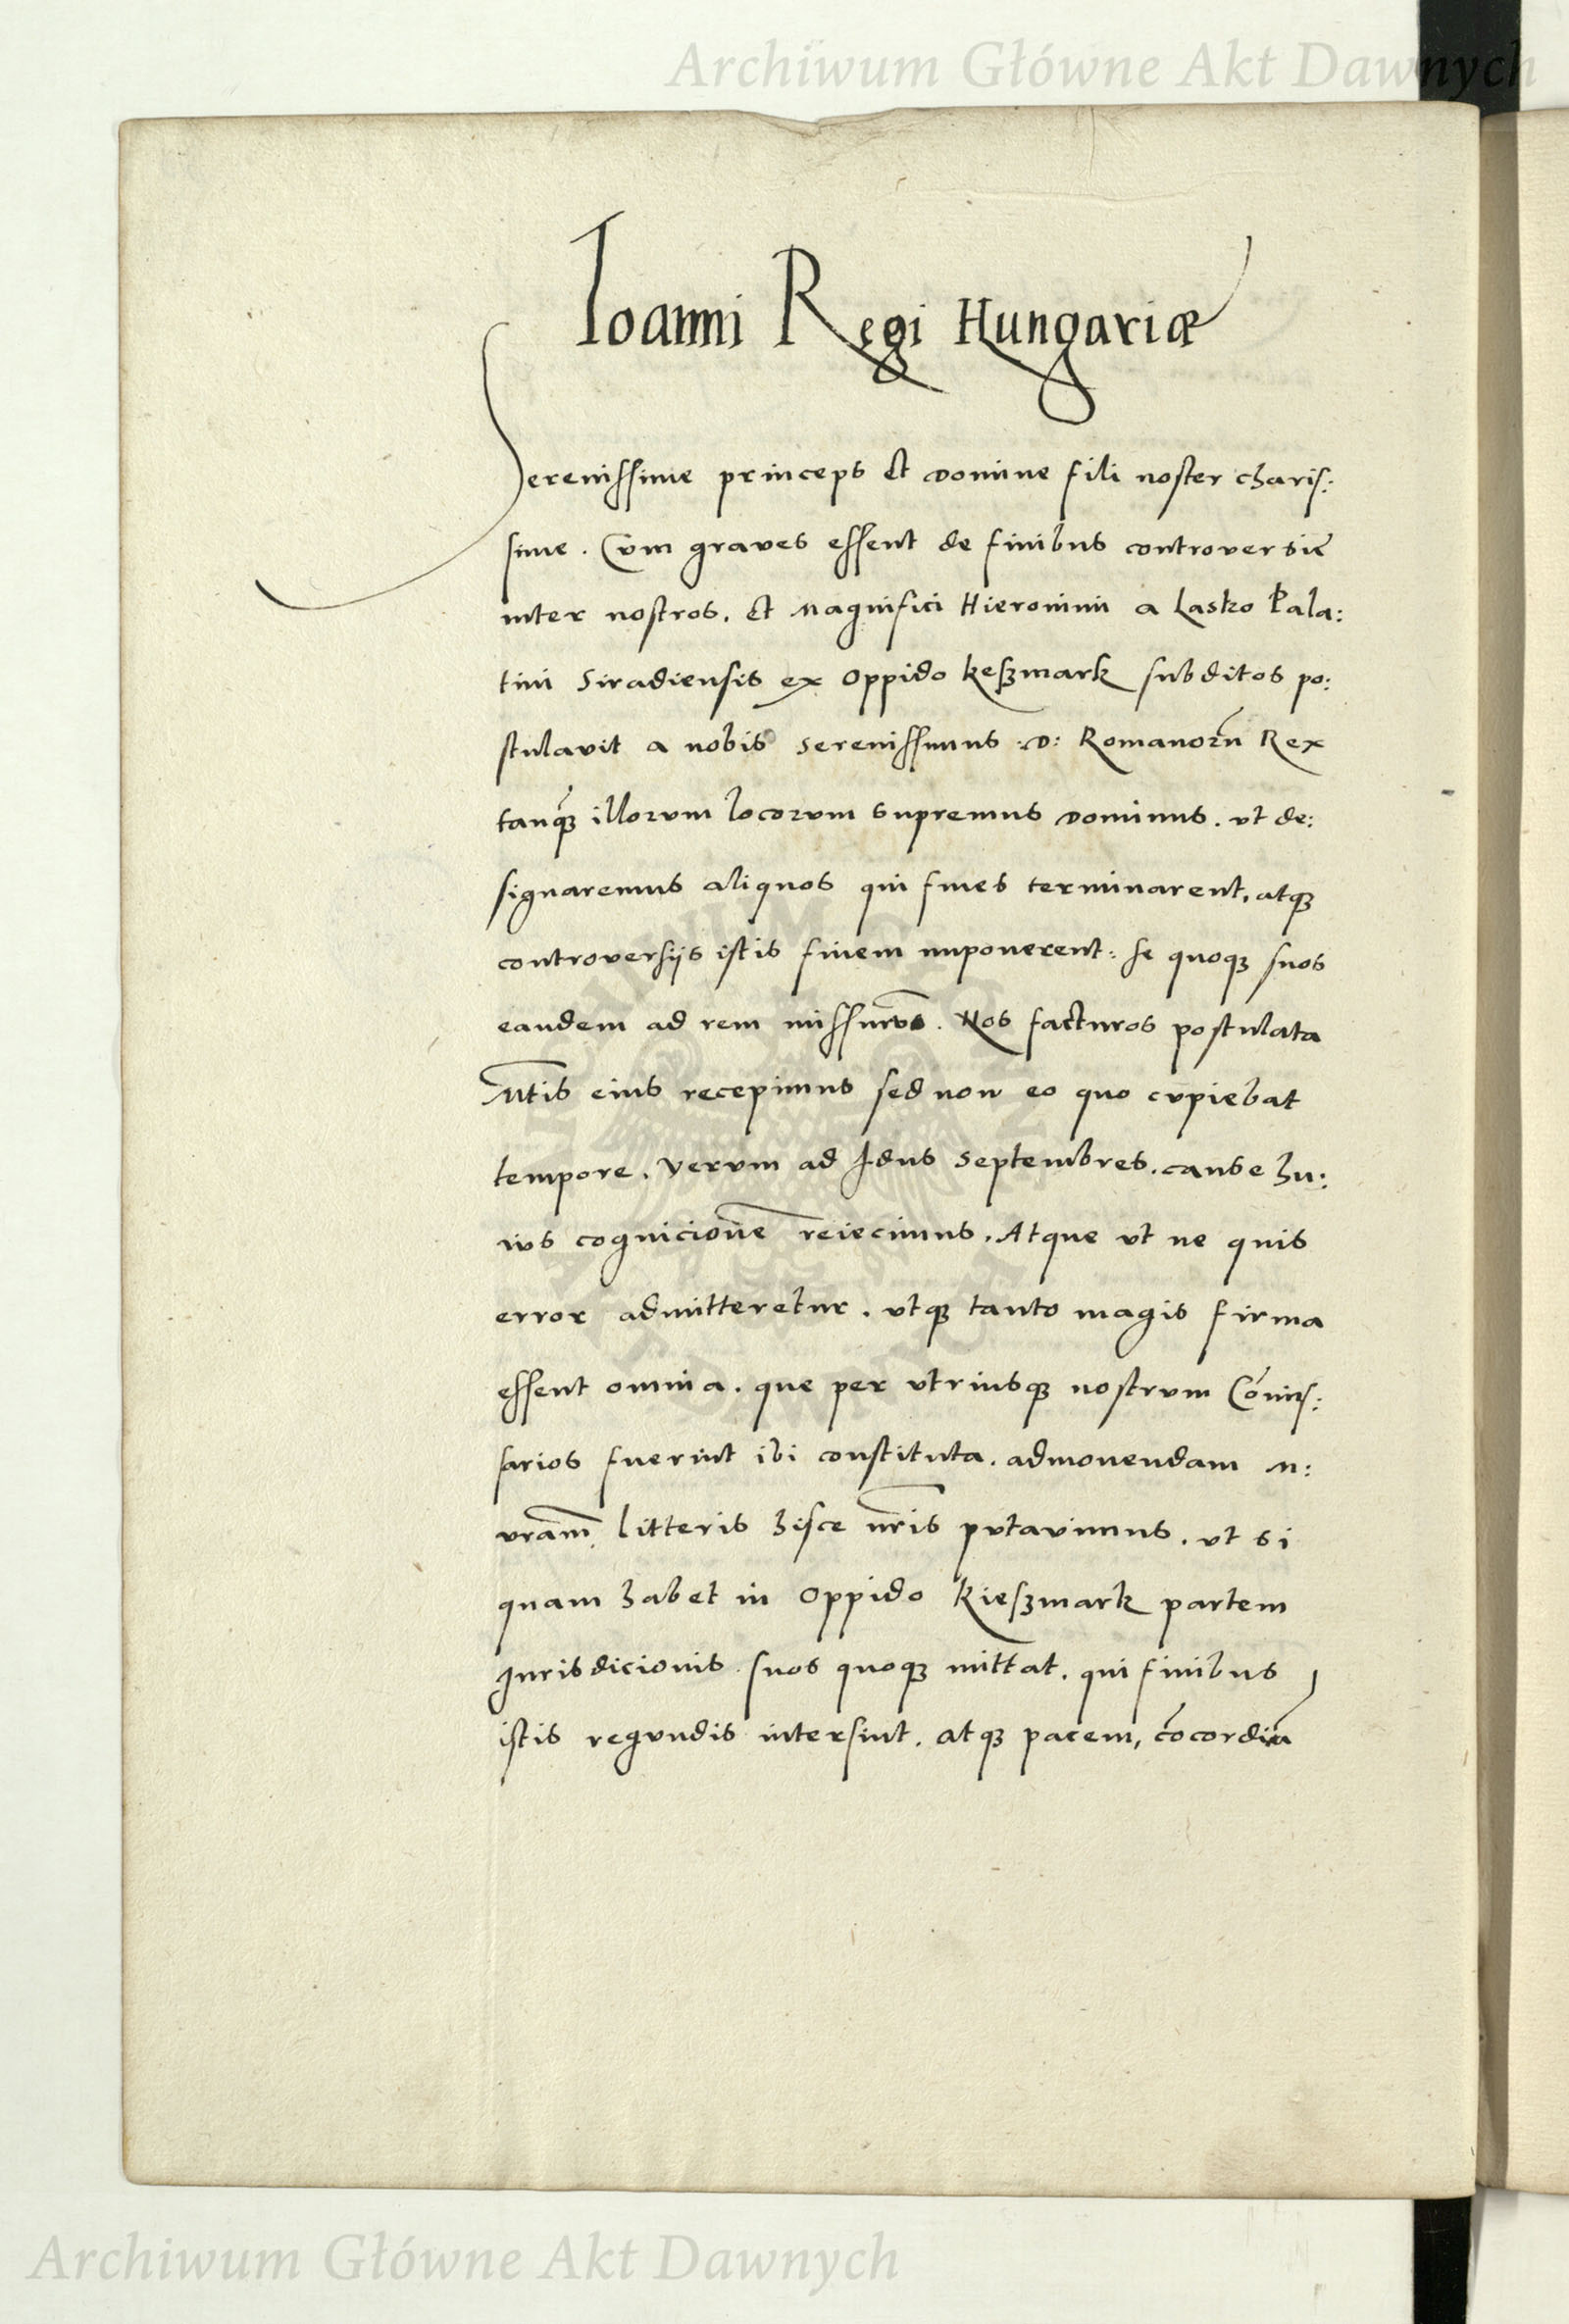 Archiwum Główne Akt Dawnych
Ioanni Regi Hungariæ
Serenissime princeps Et Domine fili noster charis:
sime. Cum graves essent de finibus controversie
inter nostros, Et Magnifici Hieronimi a Lasko Pala:
tini Siradiensis ex Oppido Keszmark subditos po:
stulavit a nobis Serenissimus :D: Romanorū Rex
tanq́ꝫ illorum locorum supremus Dominus. vt de:
signaremus aliquos qui fines terminarent, atqꝫ
controversijs istis finem imponerent: se quoqꝫ suos
eandem ad rem missuros. Nos facturos postulata
Mtis eius recepimus sed non eo quo cupiebat
tempore. Verum ad Idus Septembres. cause hu:
ius cognicionē reiecimus. Atque vt ne quis
error admitteretur. vtqꝫ tanto magis firma
essent omnia. que per vtriusqꝫ nostrum Cōmis:
sarios fuerint ibi constituta. admonendam M:
vram̄ litteris hisce nr̄is putavimus. vt si
quam habet in Oppido Kieszmark partem
Iurisdicionis suos quoqꝫ mittat. qui finibus
istis regundis intersint. atqꝫ pacem, cōcordiā
Archiwum Główne Akt Dawnych